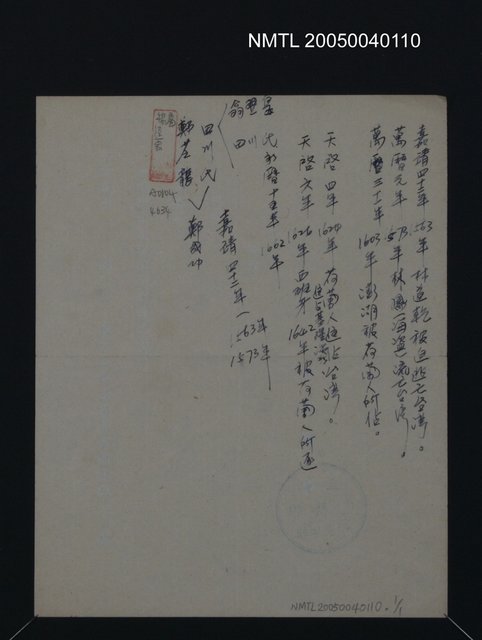 NMTL 20050040110
嘉靖四十二年 1563年 林道乾被迫逃亡台灣。
萬曆元年 1573年 林鳳(海盜)流亡台灣。
萬曆三十一年 1603年 澎湖被荷蘭人所佔。
天啓四年 1624年 荷蘭人進占台灣。
天啓六年 1626年 西班牙進占基隆淡水 1642年被荷蘭人所逐
翁翌皇
四川氏 永曆十五年 1602年
嘉靖四十二年 1563年
1573年
四川氏
鄭芝龍
鄭成功
A0104
4634
NMTL20050040110. 1/1